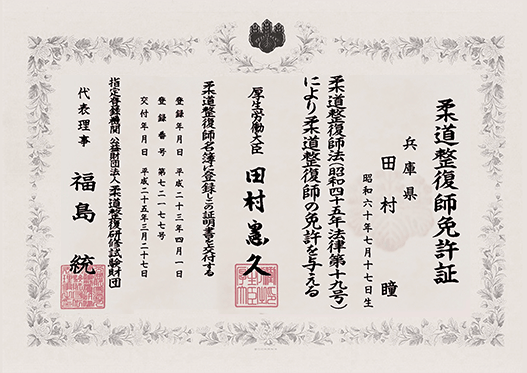 柔道整復師免許証
兵庫県
田村 瞳
昭和六十年七月十七日生
柔道整復師法(昭和四十五年法律第十九号)
により柔道整復師の免許を与える
厚生労働大臣 田村憲久
柔道整復師名簿に登録しこの証明書を交付する
登録年月日 平成二十三年四月一日
登録番号 第七二一七七号
交付年月日 平成二十五年三月二十七日
指定登録機関 公益財団法人柔道整復研修試験財団
代表理事 福島 統